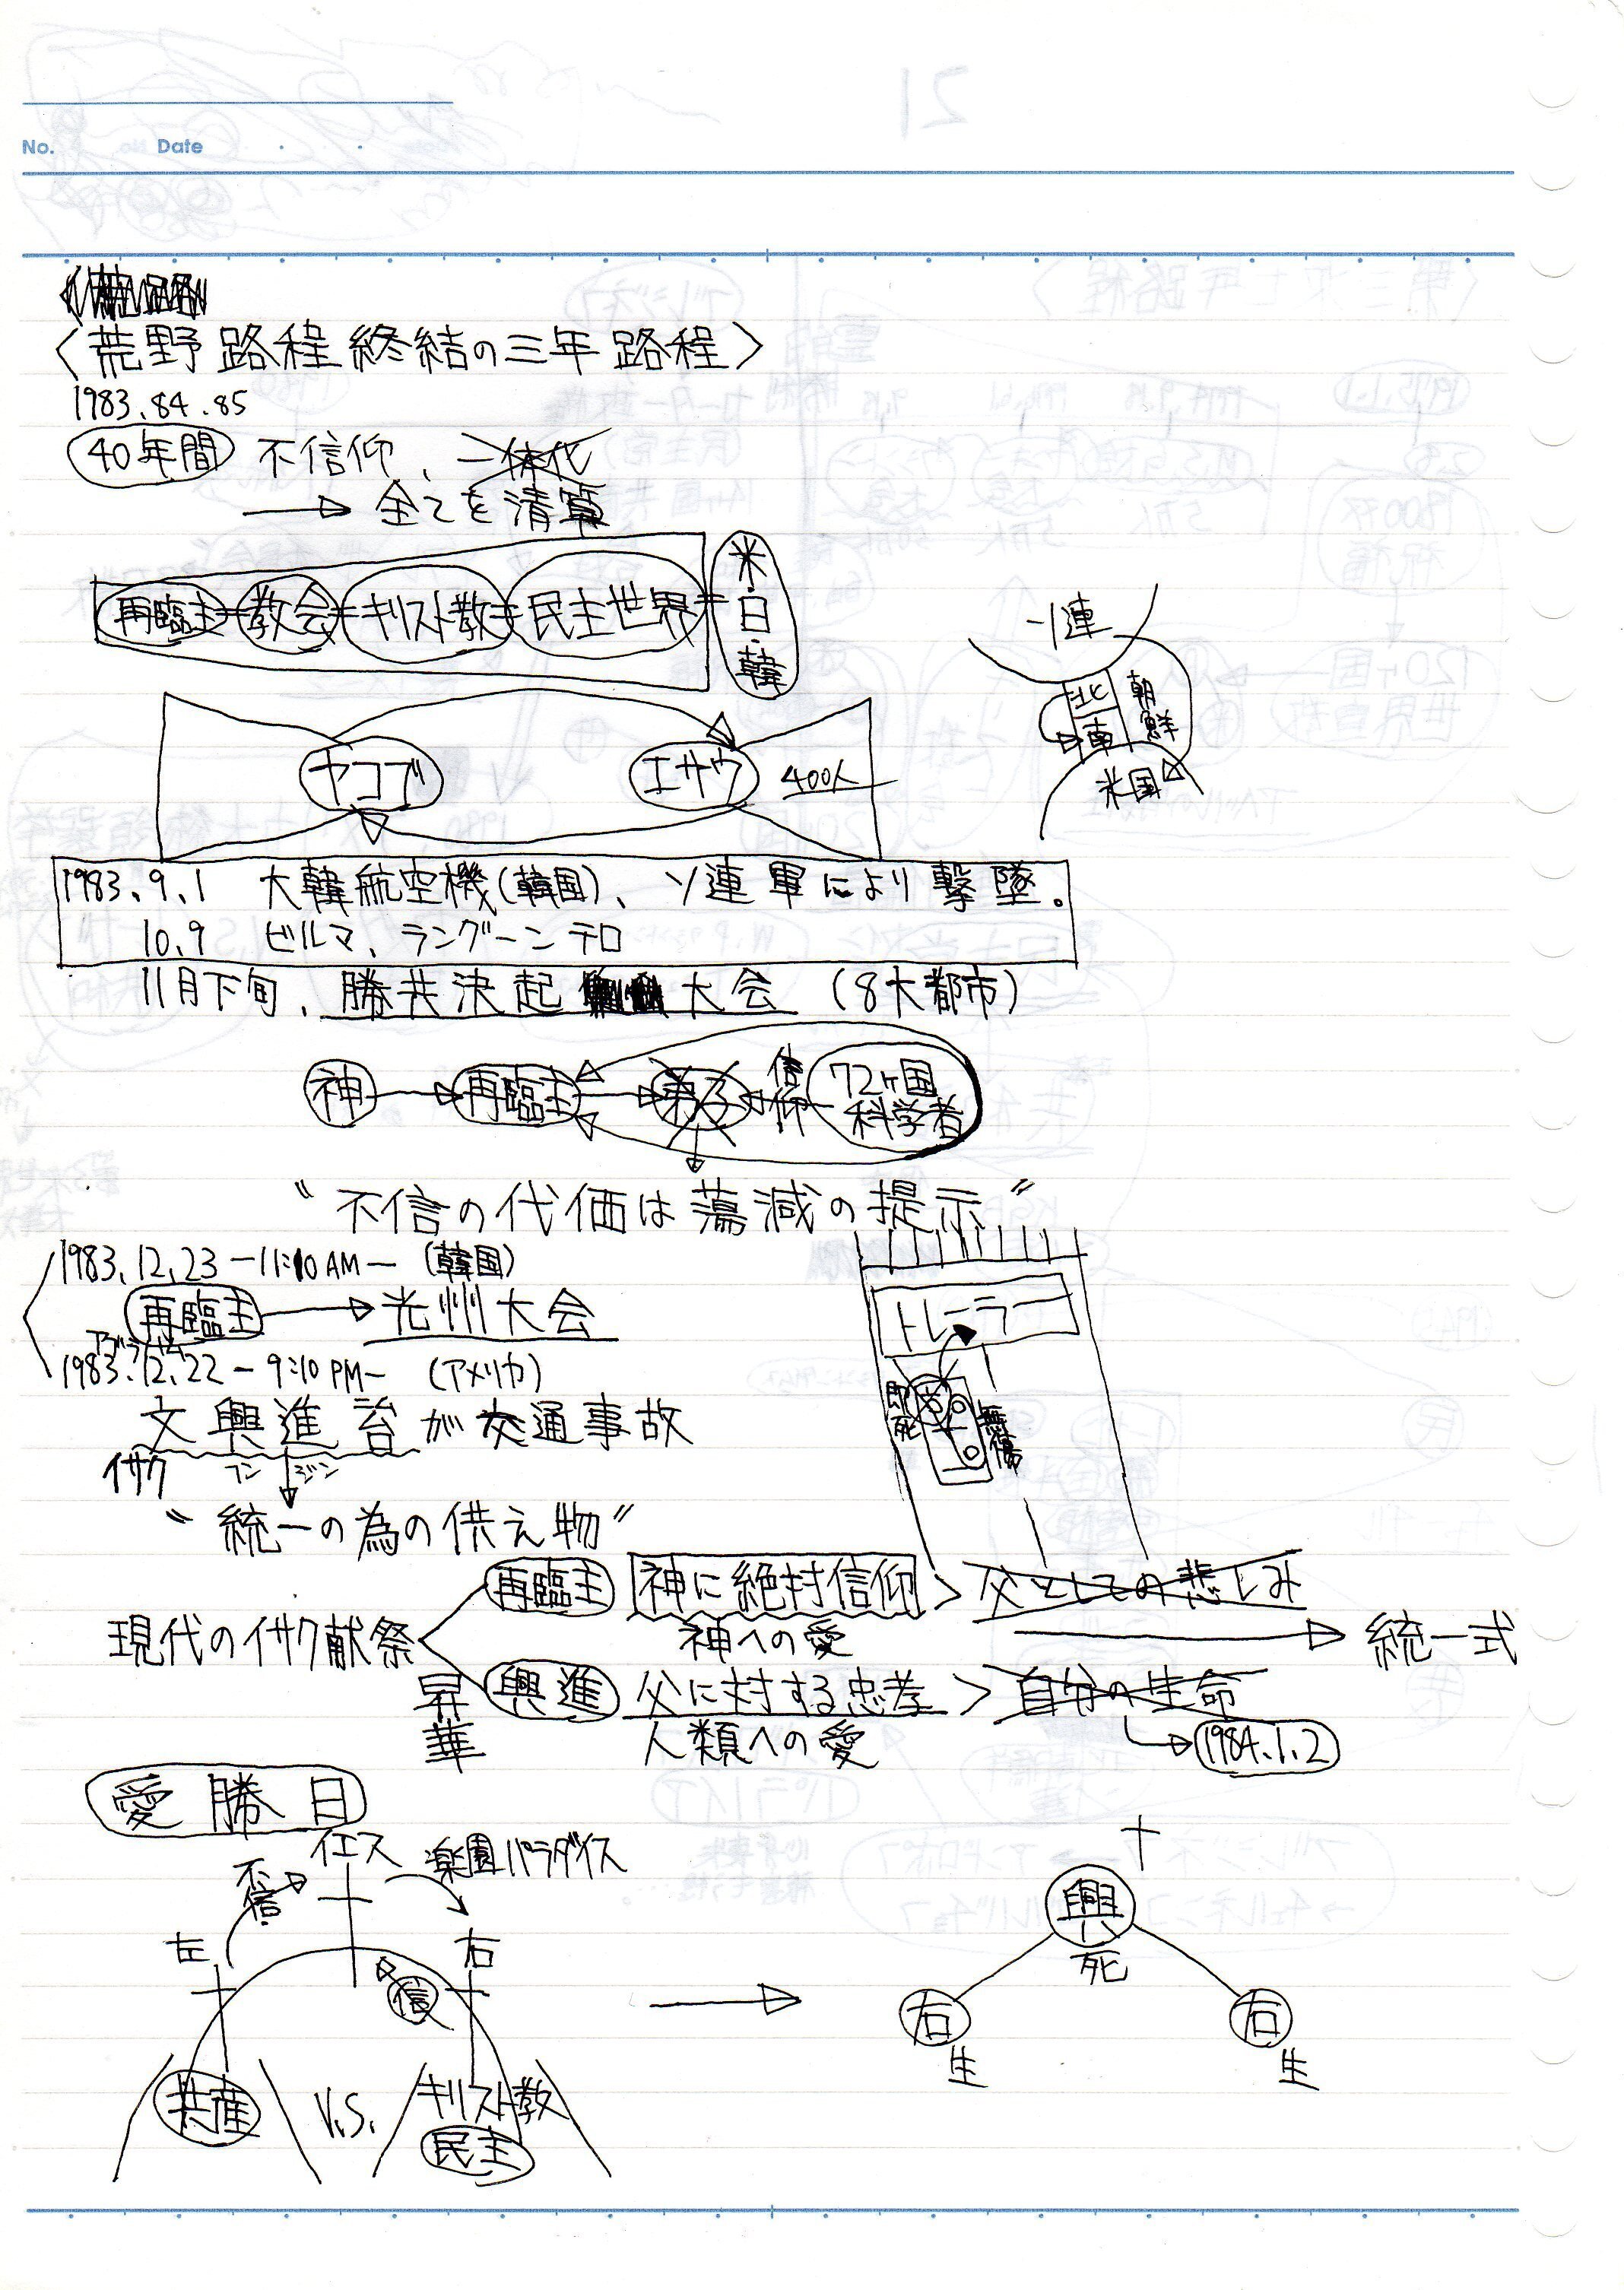 No. Date
〈荒野路程終結の三年路程〉
1983.84.85
40年間 不信仰、一体化
→ 全てを清算
再臨主=教会=キリスト教=民主世界=米・日・韓
ソ連
北 朝鮮
南
米国
ヤコブ エサウ 400人
1983.9.1 大韓航空機(韓国)、ソ連軍により撃墜。
10.9 ビルマ、ラングーンテロ
11月下旬、勝共決起大会 (8大都市)
神 → 再臨主 → 弟子 ← 信仰 72ヶ国科学者
〝不信の代価は蕩減の提示〞
1983.12.23 ー11:10AMー (韓国)
再臨主 → 光州大会
アブラハム
1983.12.22 ー 9:10PMー (アメリカ)
文興進 が交通事故
イサク フン ジン
トレーラー
即死 無傷
〝統一の為の供え物〞
再臨主 神に絶対信仰 > 父としての悲しみ
現代のイサク献祭 神への愛 → 統一式
興進 父に対する忠孝 > 自分の生命
昇華 人類への愛 → 1984.1.2
愛勝日
イエス 楽園パラダイス
不信
左 右
信
共産 V.S. キリスト教
民主
→
興
死
右 右
生 生